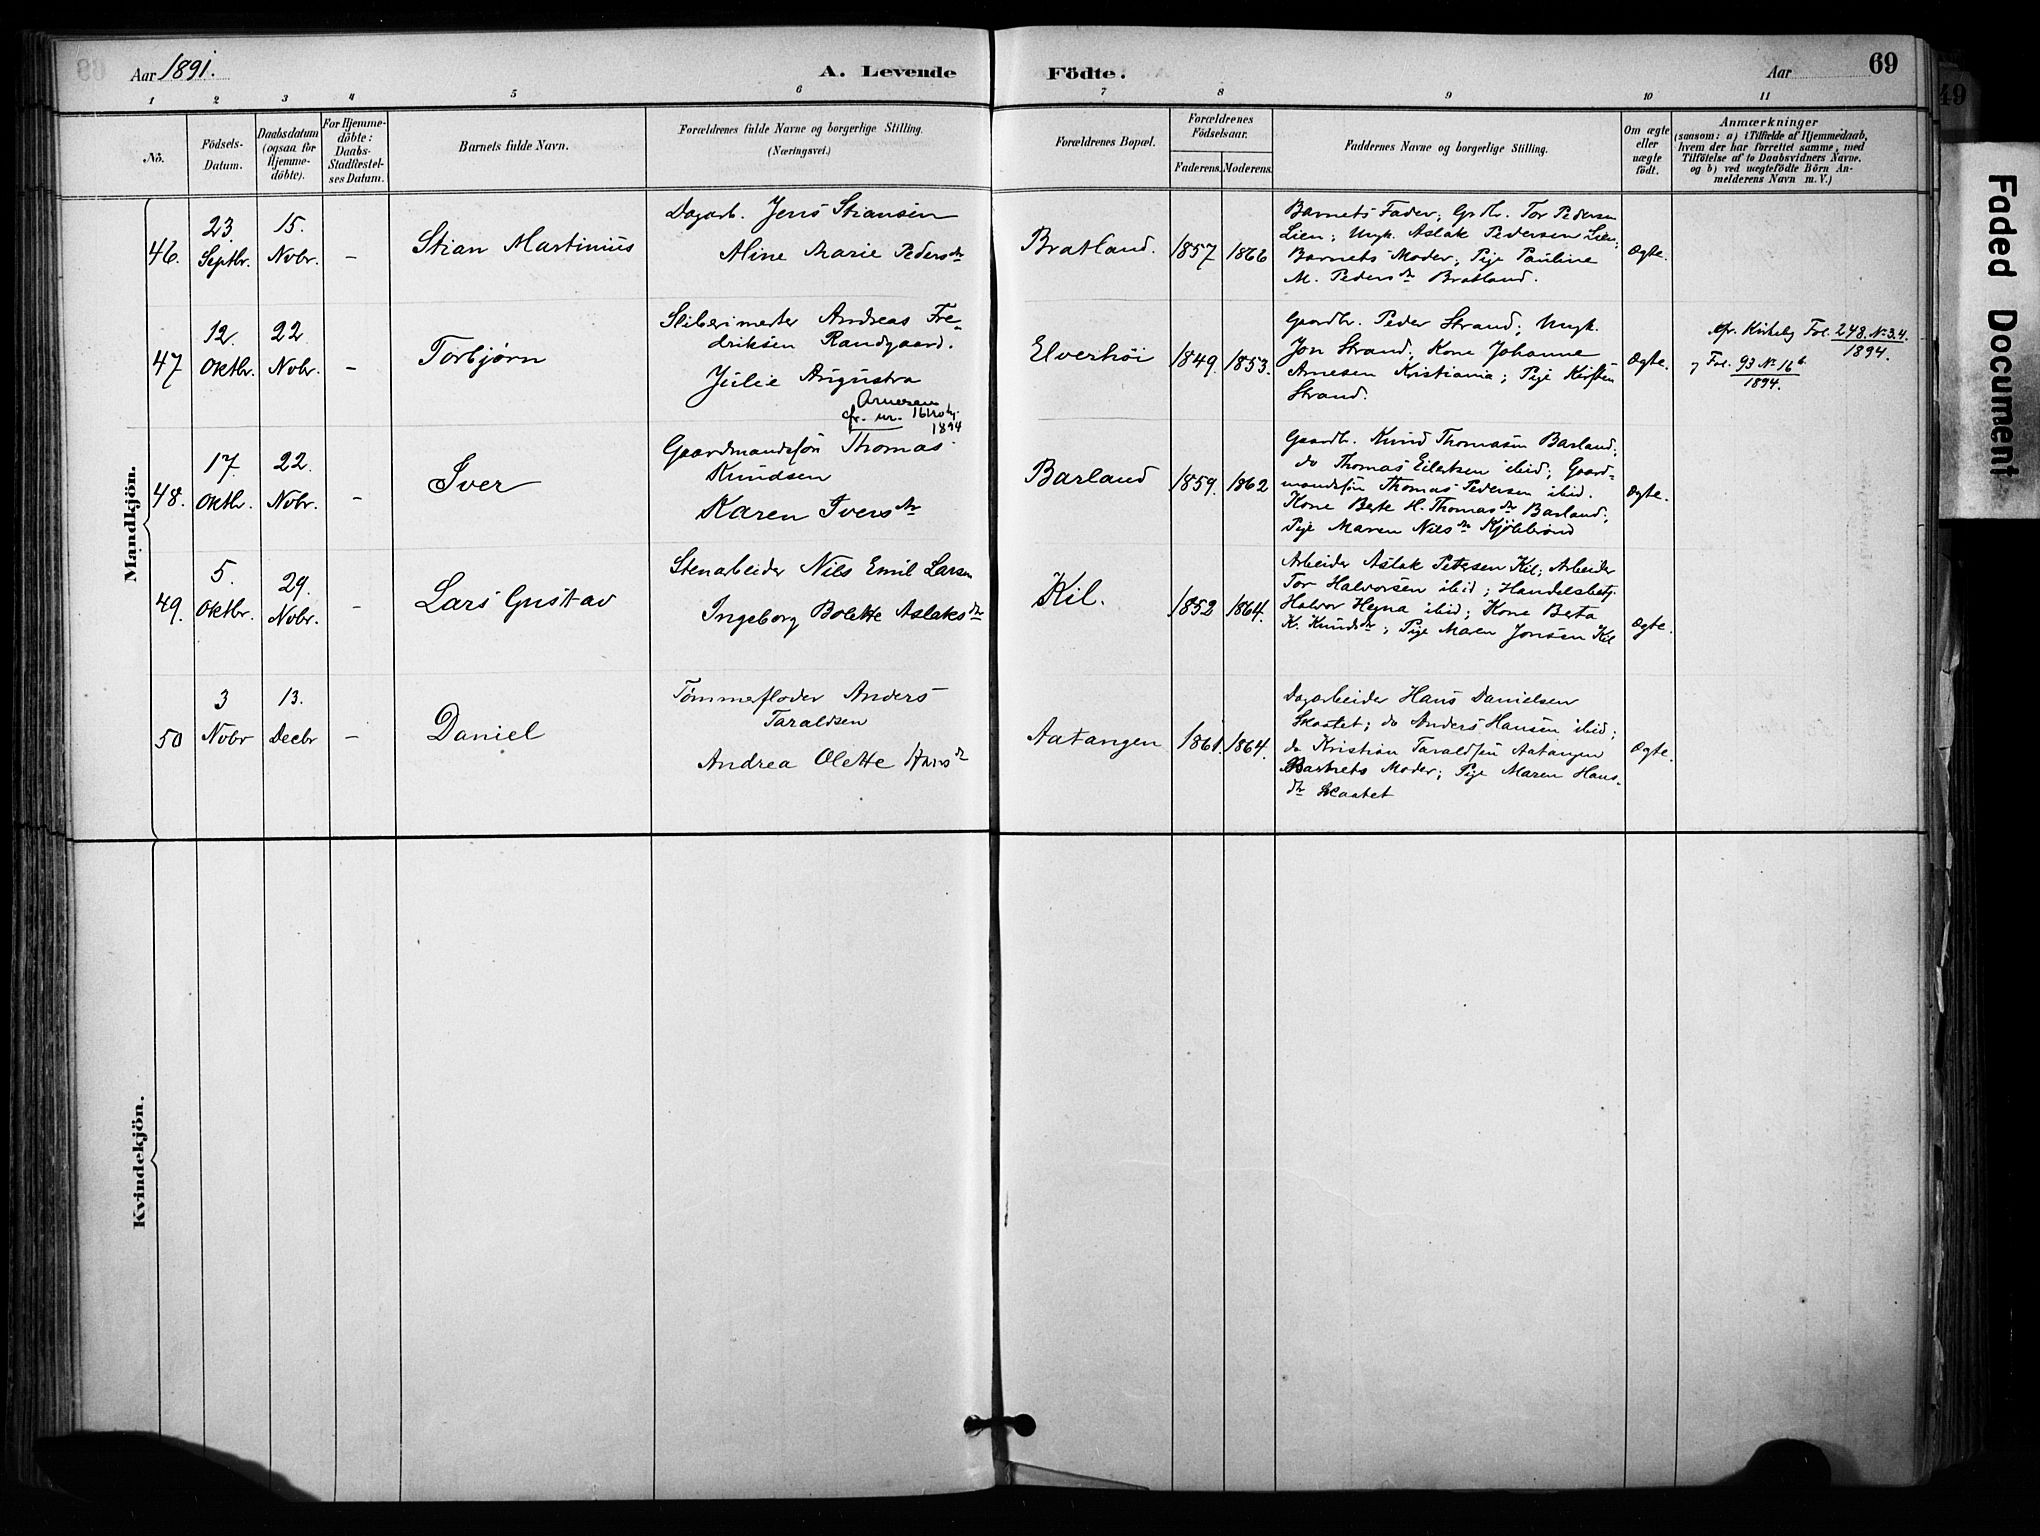 Aar 1891.
A. Levende
Födte.
Aar
69
1 2 3 4 5 6 7 8 9 10 11
Nö.
Födsels-
Datum.
Daabsdatum
(ogsaa for
Hjemme-
döbte).
For Hjemme-
döbte:
Daabs-
Stadfæstel-
ses Datum.
Barnets fulde Navn.
Forældrenes fulde Navne og borgerlige Stilling.
(Næringsvei.)
Forældrenes Bopæl.
Forældrenes
Födselsaar.
Faderens. Moderens.
Faddernes Navne og borgerlige Stilling.
Om ægte
eller
uægte
födt.
Anmærkninger
(saasom: a) i Tilfælde af Hjemmedaab,
hvem der har forrettet samme, med
Tilföielse af to Daabsvidners Navne.
og b) ved uægtefödte Börn An-
melderens Navn m. V.)
Mandkjön.
46.
23
Septbr.
15.
Novbr.
-
Stian Martinius
Dagarb. Jens Stiansen
Aline Marie Pedersdtr
Bratland.
1857 1866
Barnets Fader; Grdbr. Tor Pedersen
Lien; Ungk. Aslak Pedersen Lien;
Barnets Moder; Pige Pauline
M. Pedersdtr Bratland.
Ægte.
47
12.
Oktbr.
22
Novbr.
-
Torbjørn
Sliberimester Andreas Fre-
driksen Randgaard.
Julie Augusta
Arnesen
cfr. nr. 16
1894
Elverhöi
1849. 1853.
Gaardbr. Peder Strand; Ungk.
Jon Strand; Kone Johanne
Arnesen Kristiania; Pige Kirsten
Strand.
Ægte.
cfr. Kirkebg Fol. 248. No 3.4.
1894.
Fol. 93 No 16 b
1894.
48.
17.
Oktbr.
22.
Novbr.
-
Iver
Gaardmandssøn Thomas
Knudsen
Karen Iversdtr
Barland
1859. 1862
Gaardbr. Knud Thomasen Barland;
do Thomas Eilertsen ibid; Gaard-
mandssøn Thomas Pedersen ibid.
Kone Berte H. Thomasdtr Barland;
Pige Maren Nilsdtr Kjölebrönd
Ægte.
49.
5.
Oktbr.
29.
Novbr.
-
Lars Gustav
Stenarbeider Nils Emil Larsen
Ingeborg Bolette Aslaksdtr
Kil.
1852 1864.
Arbeider Aslak Petersen Kil; Arbeider
Tor Halvorsen ibid; Handelsbetj.
Halvor Hegna ibid; Kone Berta
K. Knudsdtr; Pige Maren Jonsen Kil
Ægte.
50
3
Novbr
13.
Decbr
-
Daniel
Tømmerfløder Anders
Taraldsen
Andrea Olette Hansdtr
Aatangen
1861. 1864.
Dagarbeider Hans Danielsen
Skaatet; do Anders Hansen ibid;
do Kristian Taraldsen Aatangen
Barnets Moder; Pige Maren Hans-
dtr Skaatet
Ægte.
Kvindekjön.
49
Faded Document